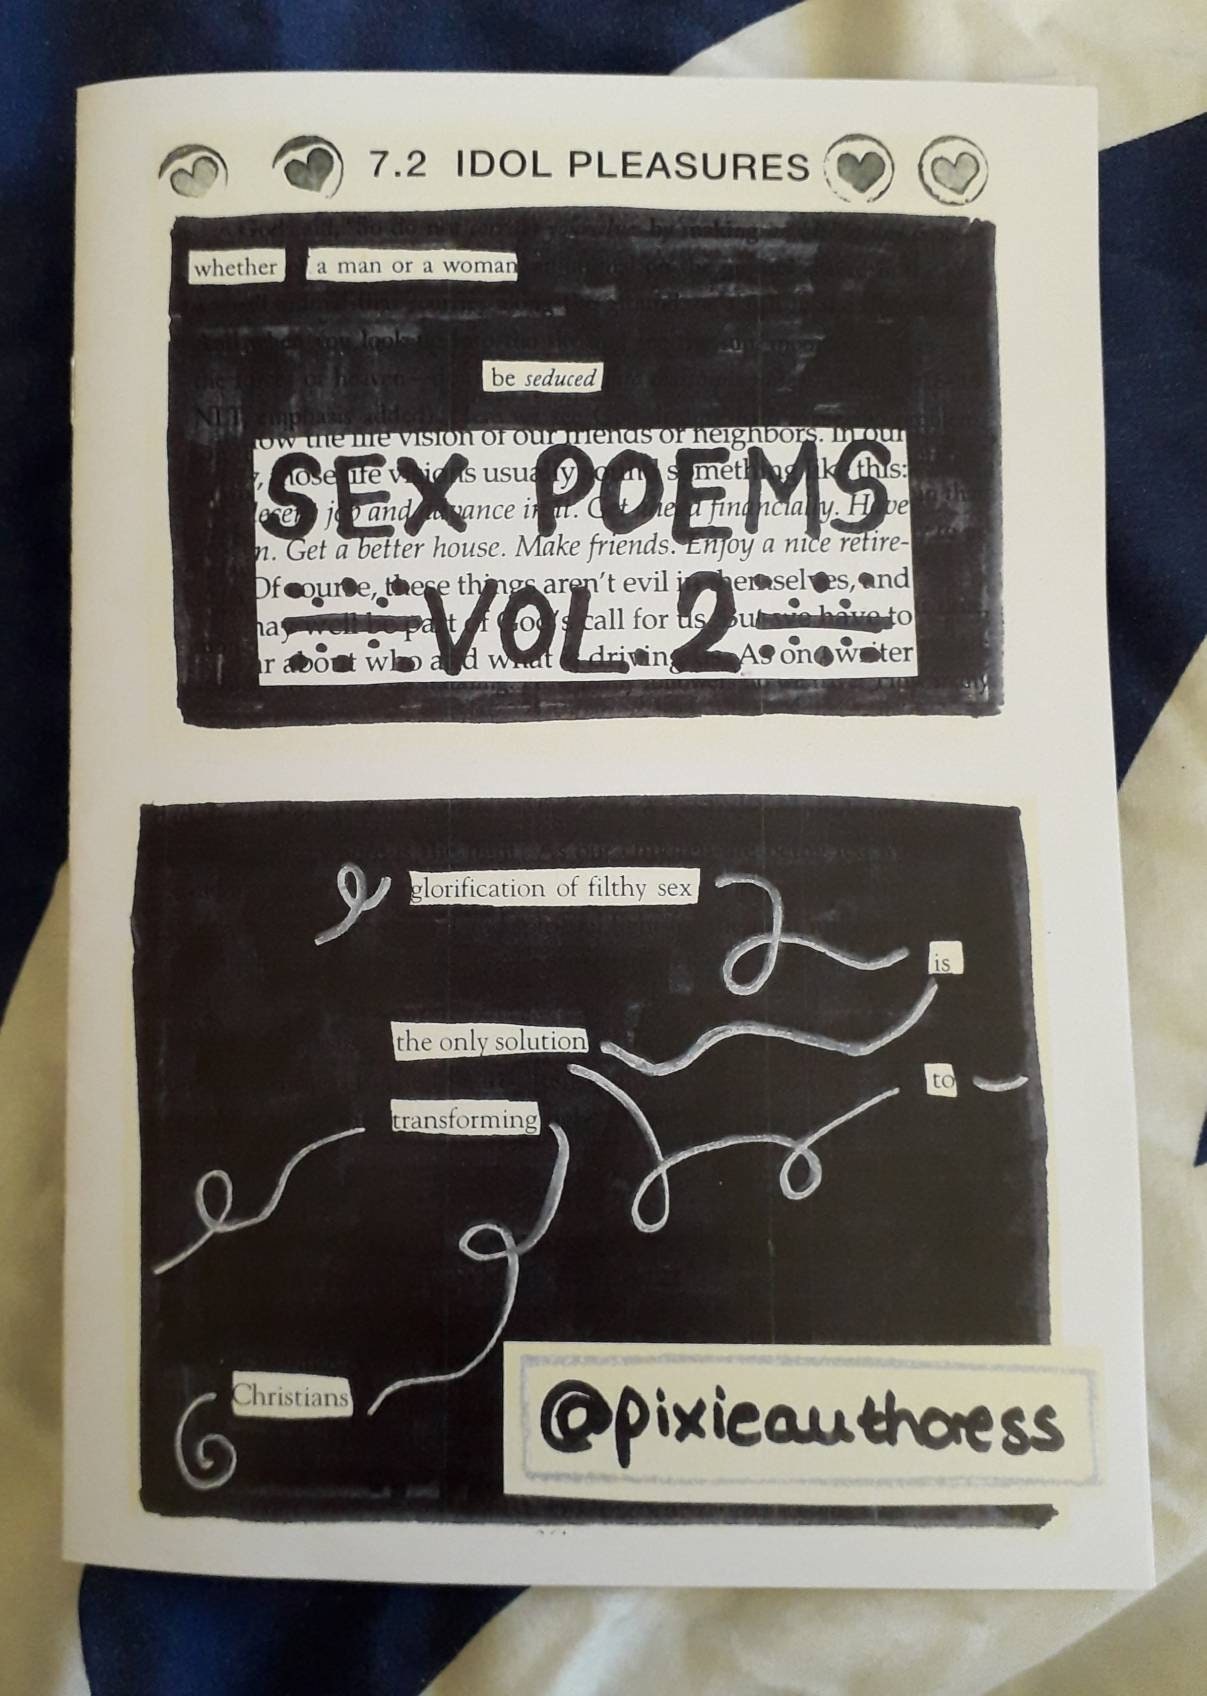 7.2 IDOL PLEASURES
whether a man or a woman
be seduced
low the life vision of our friends or neighbors. In our
those life visions usually sound something like this:
SEX POEMS
job and advance in it. Get ahead financially. Have
n. Get a better house. Make friends. Enjoy a nice retire-
Of course, these things aren't evil in themselves, and
VOL 2
may well be part of God's call for us. But we have to
r about who and what is driving us. As one writer
glorification of filthy sex
is
the only solution
to
transforming
Christians
@pixieauthoress